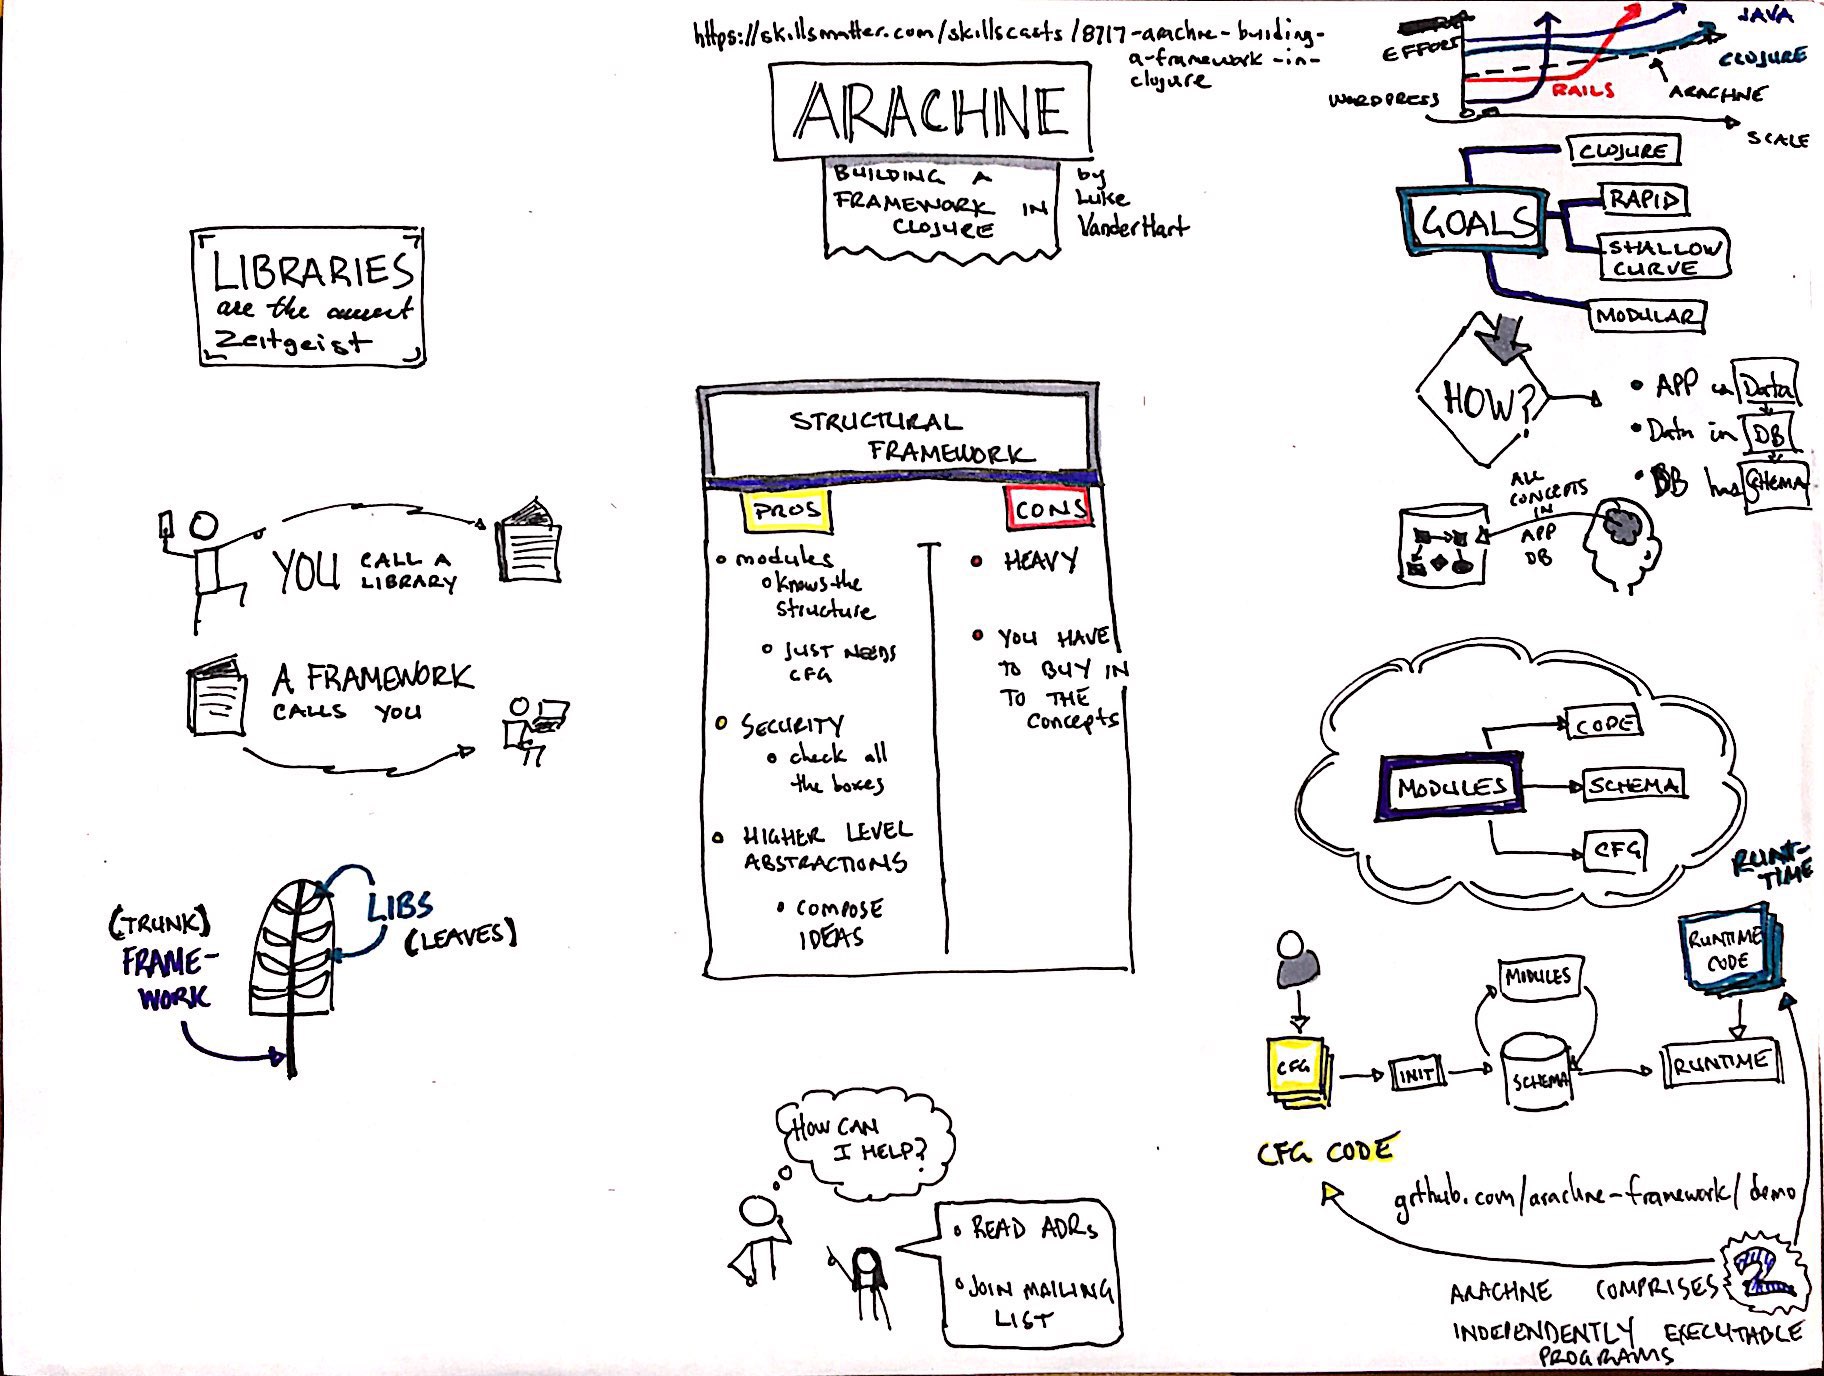 https://skillsmatter.com/skillscasts/8717-arachne-building-
a-framework-in-
clojure
ARACHNE
BUILDING A
FRAMEWORK IN
CLOJURE
by
Luke
VanderHart
LIBRARIES
are the current
Zeitgeist
YOU CALL A
LIBRARY
A FRAMEWORK
CALLS YOU
(TRUNK)
FRAME-
WORK
LIBS
(LEAVES)
STRUCTURAL
FRAMEWORK
PROS
modules
knows the
structure
JUST NEEDS
CFG
SECURITY
check all
the boxes
HIGHER LEVEL
ABSTRACTIONS
COMPOSE
IDEAS
CONS
HEAVY
YOU HAVE
TO BUY IN
TO THE
Concepts
HOW CAN
I HELP?
READ ADRs
JOIN MAILING
LIST
EFFORT
WORDPRESS
RAILS
JAVA
CLOJURE
ARACHNE
SCALE
GOALS
CLOJURE
RAPID
SHALLOW
CURVE
MODULAR
HOW?
APP in Data
Data in DB
DB has SCHEMA
ALL
CONCEPTS
IN
APP
DB
MODULES
CODE
SCHEMA
CFG
RUN-
TIME
RUNTIME
CODE
MODULES
CFG
INIT
SCHEMA
RUNTIME
CFG CODE
github.com/arachne-framework/demo
ARACHNE COMPRISES 2
INDEPENDENTLY EXECUTABLE
PROGRAMS